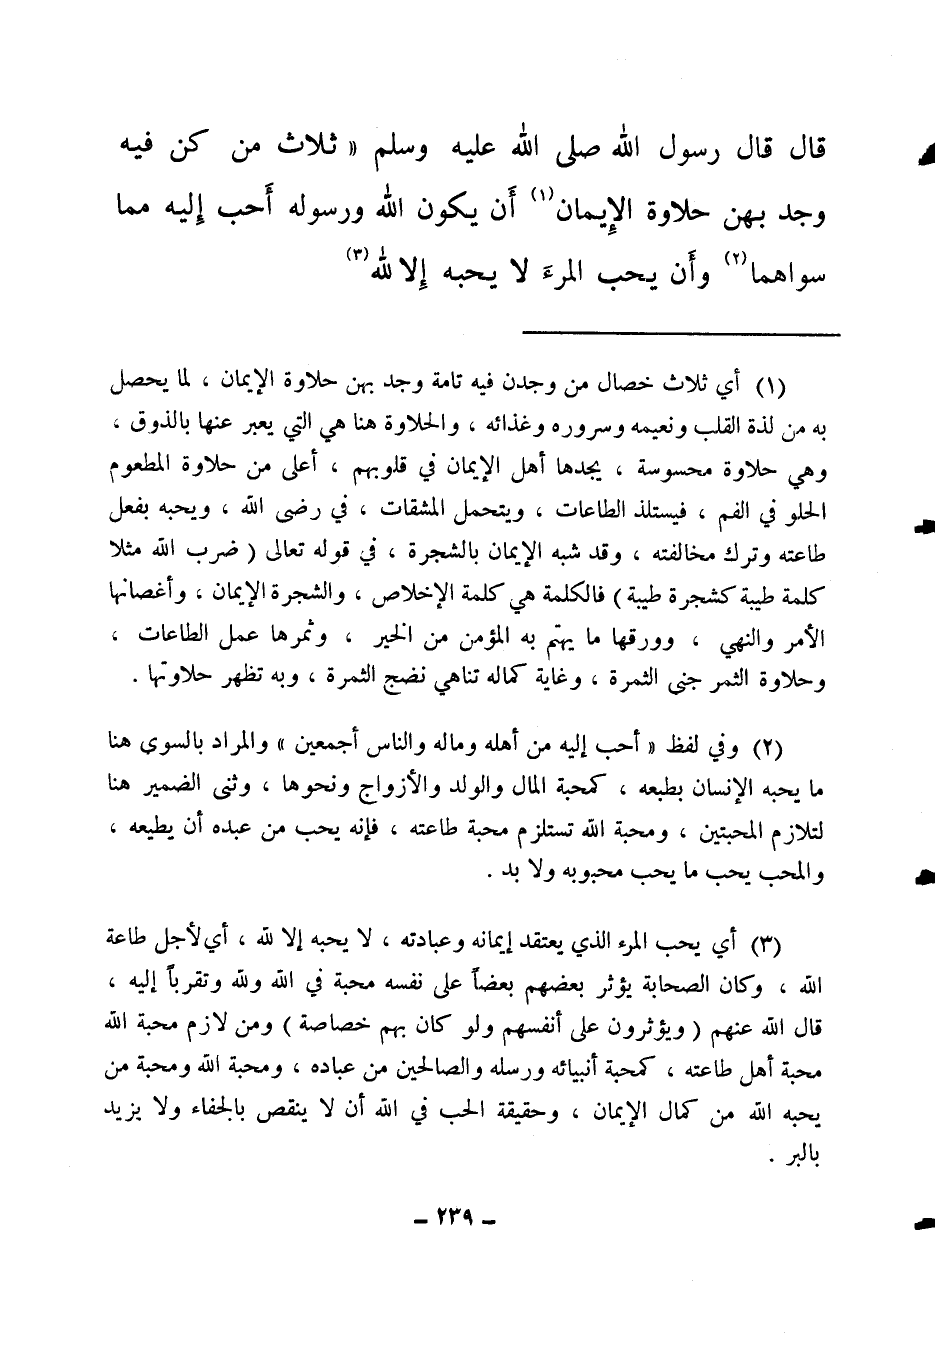 قال قال رسول الله صلى الله عليه وسلم « ثلاث من كن فيه
وجد بهن حلاوة الإيمان(١) أَن يكون الله ورسوله أَحب إِليه مما
سواهما(٢) وأَن يحب المرءَ لا يحبه إِلا لله(٣)
(١) أي ثلاث خصال من وجدن فيه تامة وجد بهن حلاوة الإيمان ، لما يحصل
به من لذة القلب ونعيمه وسروره وغذائه ، والحلاوة هنا هي التي يعبر عنها بالذوق ،
وهي حلاوة محسوسة ، يجدها أهل الإيمان في قلوبهم ، أعلى من حلاوة المطعوم
الحلو في الفم ، فيستلذ الطاعات ، ويتحمل المشقات ، في رضى الله ، ويحبه بفعل
طاعته وترك مخالفته ، وقد شبه الإيمان بالشجرة ، في قوله تعالى ( ضرب الله مثلا
كلمة طيبة كشجرة طيبة ) فالكلمة هي كلمة الإخلاص ، والشجرة الإيمان ، وأغصانها
الأمر والنهي ، وورقها ما يهتم به المؤمن من الخير ، وثمرها عمل الطاعات ،
وحلاوة الثمر جنى الثمرة ، وغاية كماله تناهي نضج الثمرة ، وبه تظهر حلاوتها .
(٢) وفي لفظ « أحب إليه من أهله وماله والناس أجمعين » والمراد بالسوى هنا
ما يحبه الإنسان بطبعه ، كمحبة المال والولد والأزواج ونحوها ، وثنى الضمير هنا
لتلازم المحبتين ، ومحبة الله تستلزم محبة طاعته ، فإنه يحب من عبده أن يطيعه ،
والمحب يحب ما يحب محبوبه ولا بد .
(٣) أي يحب المرء الذي يعتقد إيمانه وعبادته ، لا يحبه إلا لله ، أي لأجل طاعة
الله ، وكان الصحابة يؤثر بعضهم بعضاً على نفسه محبة في الله ولله وتقرباً إليه ،
قال الله عنهم ( ويؤثرون على أنفسهم ولو كان بهم خصاصة ) ومن لازم محبة الله
محبة أهل طاعته ، كمحبة أنبيائه ورسله والصالحين من عباده ، ومحبة الله ومحبة من
يحبه الله من كمال الإيمان ، وحقيقة الحب في الله أن لا ينقص بالجفاء ولا يزيد
بالبر .
– ٢٣٩ –